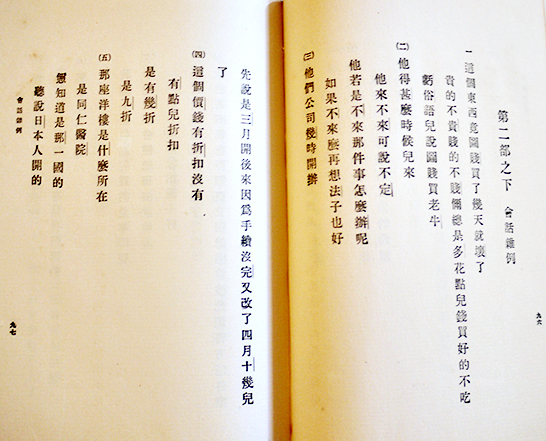 第二部之下 會話雜例
㈠ 這個東西竟圖賤買了幾天就壞了
貴的不貴賤的不賤你總是多花點兒錢買好的不吃
虧俗語兒說圖賤買老牛
㈡ 他得甚麼時候兒來
他來不來可說不定
他若是不來那件事怎麼辦呢
如果不來麼再想法子也好
㈢ 他們公司幾時開辦
九六
先說是三月開後來因爲手續沒完又改了四月十幾兒
了
㈣ 這個價錢有折扣沒有
有點兒折扣
是有幾折
是九折
㈤ 那座洋樓是什麼所在
是同仁醫院
您知道是那一國的
聽說日本人開的
會話雜例
九七